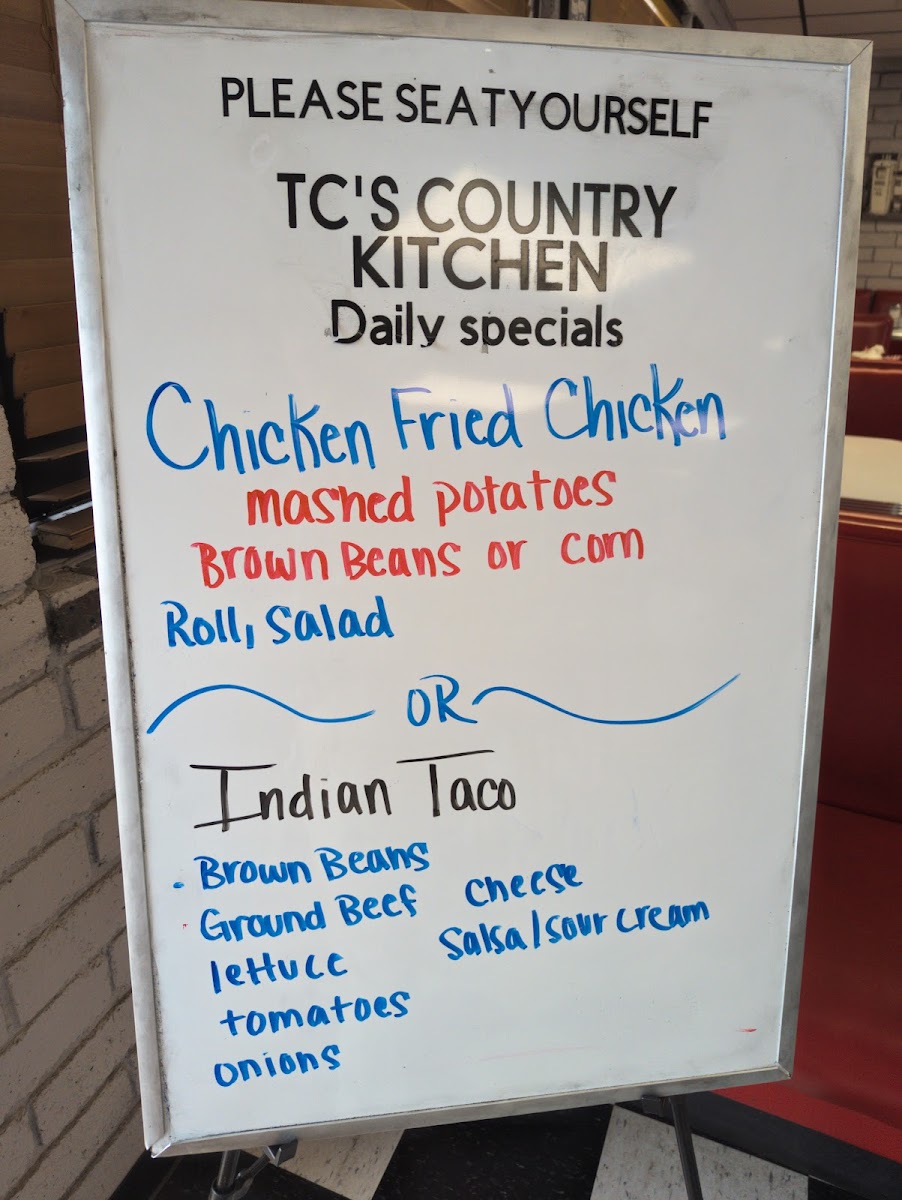 PLEASE SEAT YOURSELF
TC'S COUNTRY
KITCHEN
Daily specials
Chicken Fried Chicken
mashed potatoes
Brown Beans or corn
Roll, Salad
OR
Indian Taco
Brown Beans
Ground Beef
lettuce
tomatoes
onions
cheese
Salsa/sour cream